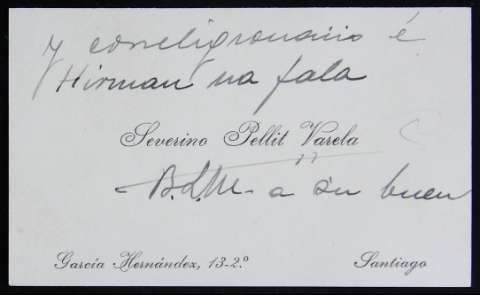 y correligionario é
Hirman na fala
Severino Pellit Varela
B.L.M. a su buen
García Hernández, 13-2.º
Santiago